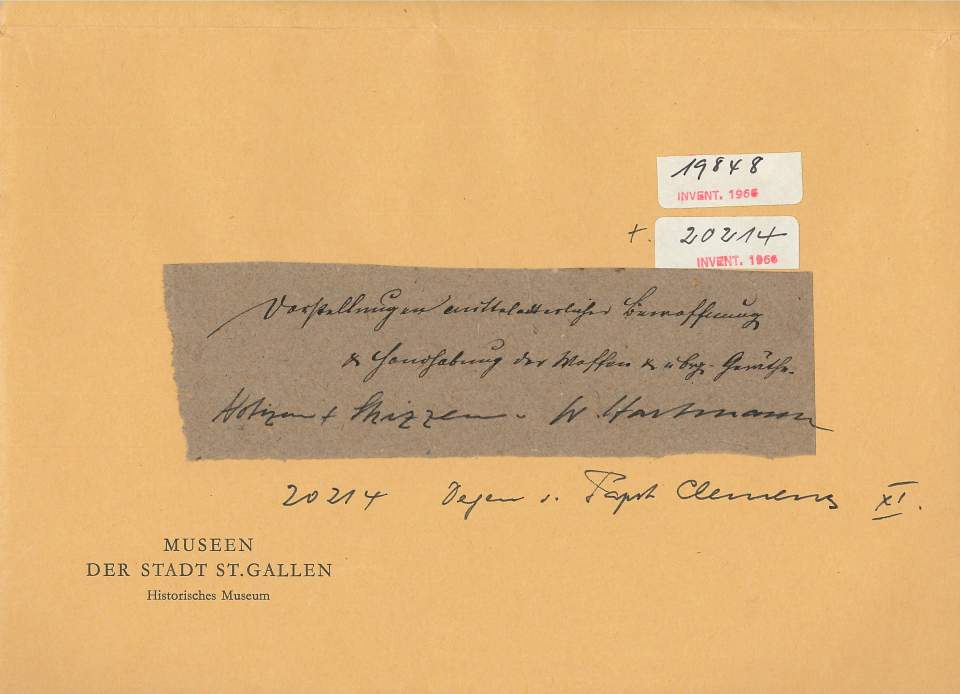 19848
INVENT. 1966
+. 20214
INVENT. 1966
Darstellungen mittelalterlicher Bewaffnung
& Handhabung der Waffen & übrg. Geräthe.
Notizen + Skizzen v. W. Hartmann
20214 Degen v. Papst Clemens XI.
MUSEEN
DER STADT ST.GALLEN
Historisches Museum